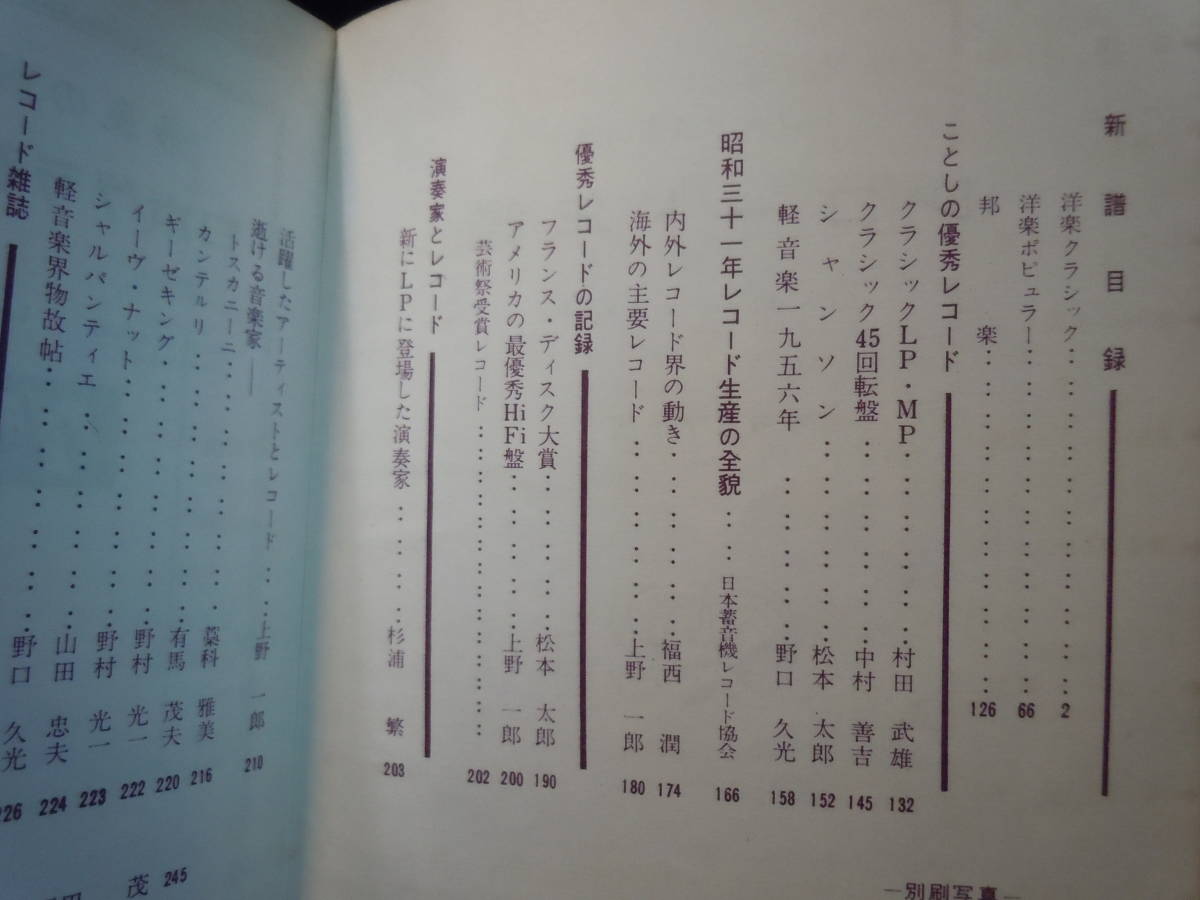 新譜目録
洋楽クラシック 2
洋楽ポピュラー 66
邦楽 126
ことしの優秀レコード
クラシックLP・MP 村田 武雄 132
クラシック45回転盤 中村 善吉 145
シャンソン 松本 太郎 152
軽音楽一九五六年 野口 久光 158
昭和三十一年レコード生産の全貌 日本蓄音機レコード協会 166
内外レコード界の動き 福西 潤 174
海外の主要レコード 上野 一郎 180
優秀レコードの記録
フランス・ディスク大賞 松本 太郎 190
アメリカの最優秀HiFi盤 上野 一郎 200
芸術祭受賞レコード 202
演奏家とレコード
新にLPに登場した演奏家 杉浦 繁 203
活躍したアーティストとレコード 上野 一郎 210
逝ける音楽家——
トスカニーニ
カンテルリ 藁科 雅美 216
ギーゼキング 有馬 茂夫 220
イーヴ・ナット 野村 光一 222
シャルパンティエ 野村 光一 223
軽音楽界物故帖 山田 忠夫 224
レコード雑誌 野口 久光 226
茂 245
—別刷写真—